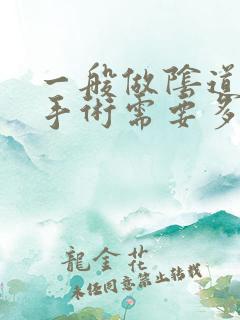 一般做陰道
手術需要多
龍金花
未經同意禁止轉載